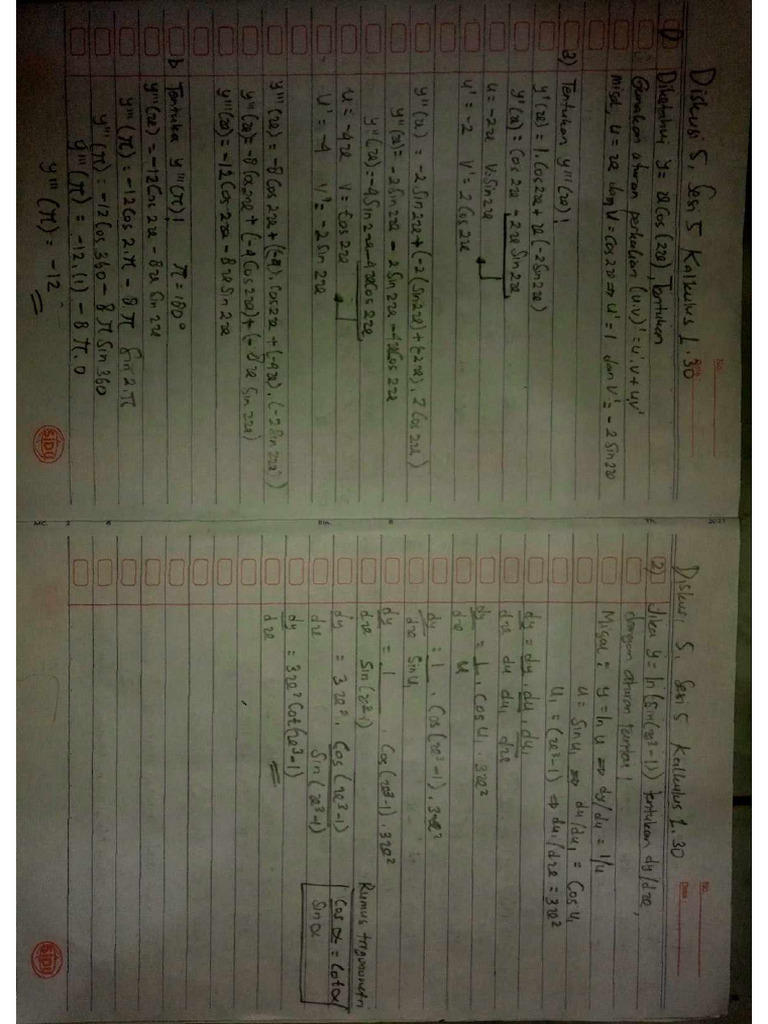 No.
Date.
Diskusi 5. Sesi 5 Kalkulus 1.30
1) Diketahui y = x Cos (2x), Tentukan
Gunakan aturan perkalian (u.v)' = u'.v + u.v'
misal, u = x dan V = Cos 2x ⇒ u' = 1 dan V' = -2 Sin 2x
a) Tentukan y'''(x)!
y'(x) = 1. Cos 2x + x (-2 Sin 2x)
y'(x) = Cos 2x - 2x Sin 2x
u = -2x V. Sin 2x
u' = -2 V' = 2 Cos 2x
y''(x) = -2 Sin 2x + (-2 (Sin 2x) + (-2x). 2 Cos 2x)
y''(x) = -2 Sin 2x - 2 Sin 2x - 4x Cos 2x
y''(x) = -4 Sin 2x - 4x Cos 2x
u = -4x V = Cos 2x
u' = -4 V' = -2 Sin 2x
y'''(x) = -8 Cos 2x + (-4). Cos 2x + (-4x). (-2 Sin 2x)
y'''(x) = -8 Cos 2x + (-4 Cos 2x) + (-8x Sin 2x)
y'''(x) = -12 Cos 2x - 8x Sin 2x
b Tentuka y'''(π)! π = 180°
y'''(x) = -12 Cos 2x - 8x Sin 2x
y'''(π) = -12 Cos 2.π - 8π Sin 2.π
y'''(π) = -12 Cos 360 - 8π Sin 360
y'''(π) = -12. (1) - 8π. 0
y'''(π) = -12
SIDU
No.
Date.
Diskusi 5. Sesi 5 Kalkulus 1.30
2) Jika y = ln (Sin (x³-1)) tentukan dy/dx,
dengan aturan rantai!
Misal : y = ln u ⇒ dy/du = 1/u
u = Sin u₁ ⇒ du/du₁ = Cos u₁
u₁ = (x³-1) ⇒ du₁/dx = 3x²
dy/dx = dy/du . du/du₁ . du₁/dx
dy/dx = 1/u . Cos u₁ . 3x²
dy/dx = 1/Sin u₁ . Cos (x³-1). 3x²
dy/dx = 1/Sin (x³-1) . Cos (x³-1). 3x²
Rumus trigonometri
dy/dx = 3x². Cos (x³-1)/Sin (x³-1)
Cos α/Sin α = Cot α
dy/dx = 3x² Cot (x³-1)
SIDU